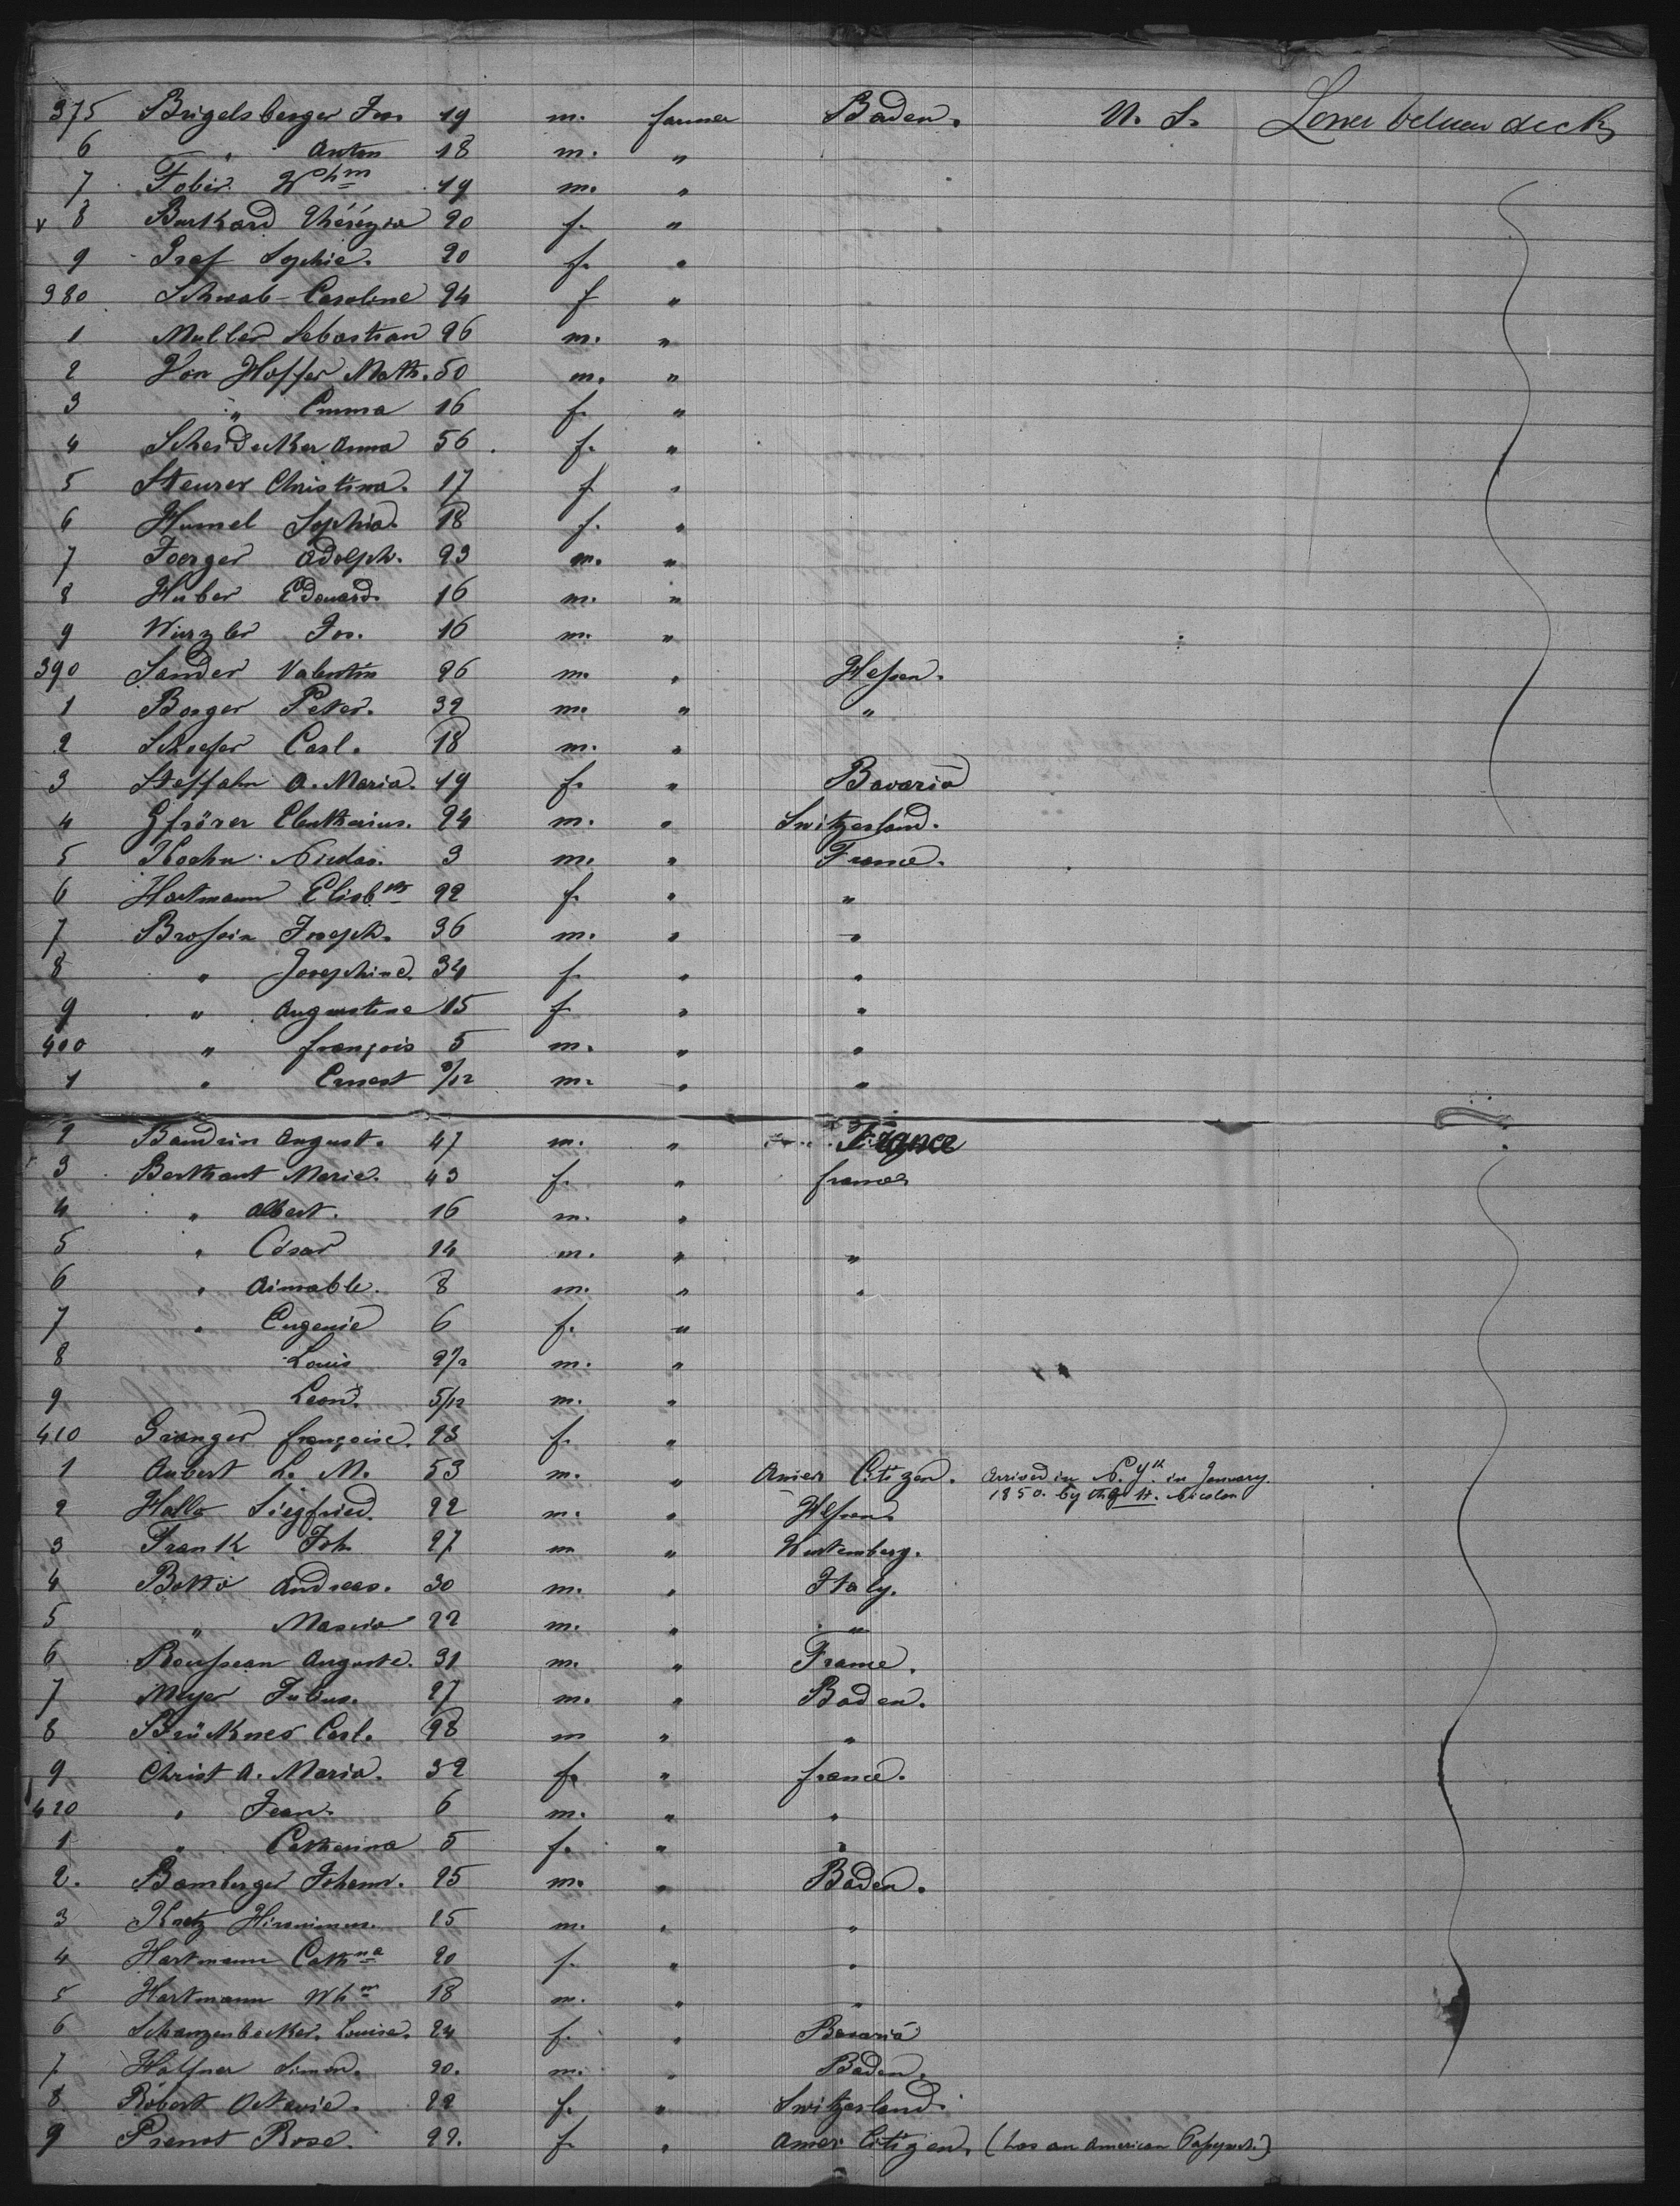 375 Brigelsberger Jos. 19 m. farmer Baden. U. S. Lower between decks
6 " Anton 18 m. "
7 Fober Whm 19 m. "
x 8 Burkard Thérézia 20 f. "
9 Graf Sophie. 20 f. "
380 Schwab Caroline 24 f "
1 Muller Sebastian 26 m. "
2 Von Hoffer Math. 50 m. "
3 " Emma 16 f. "
4 Scheidecker Anna 56 f. "
5 Steurer Christina. 17 f "
6 Humel Sophia. 18 f. "
7 Foerger Adolph. 23 m. "
8 Huber Edouard. 16 m. "
9 Wurzler Jos. 16 m. "
390 Sander Valentin 26 m. " Hessen.
1 Borger Peter. 32 m. " "
2 Schaefer Carl. 18 m. "
3 Steffahn A. Maria. 19 f. " Bavaria
4 Gfrörer Eleutherius. 24 m. " Switzerland.
5 Hoehn Nicolas. 3 m. " France.
6 Hartmann Elisbth 22 f. " "
7 Brossin Joseph. 36 m. " "
8 " Josephine. 34 f. " "
9 " Augustine 15 f " "
400 " françois 5 m. " "
1 " Ernest 9/12 m. " "
2 Baudrin August. 47 m. " France
3 Berthaut Marie. 43 f. " france
4 " Albert. 16 m. "
5 " César 14 m. " "
6 " Aimable. 8 m. " "
7 " Eugenie 6 f. "
8 Louis 2 1/2 m. "
9 Leon. 5/12 m. "
410 Granger françoise. 23 f. "
1 Aubert L. M. 53 m. " Amer Citizen. Arrived in N. Yk. in January
1850. by the St. Nicolas
2 Halle Siegfried. 22 m. " Hessen.
3 Frank Joh. 27 m " Wurtemberg.
4 Botto Andreas. 30 m. " Italy.
5 " Maseio 22 m. " "
6 Rousseau Auguste. 31 m. " France.
7 Meyer Julius. 27 m. " Baden.
8 Brückner Carl. 28 m " "
9 Christ A. Maria. 32 f. " france.
420 " Jean. 6 m. " "
1 " Catherina 5 f. " "
2. Bamberger Johann. 25 m. " Baden.
3 Kretz Hironimus. 15 m. " "
4 Hartmann Cathna 20 f. " "
5 Hartmann Whm 18 m. " "
6 Schanzenbecker. Louise. 24 f. " Bavaria
7 Halfner Simon. 20. m. " Baden.
8 Robert Octavie. 22 f. " Switzerland.
9 Prenot Rose. 22. f. " Amer Citizen. (has an American Passport.)